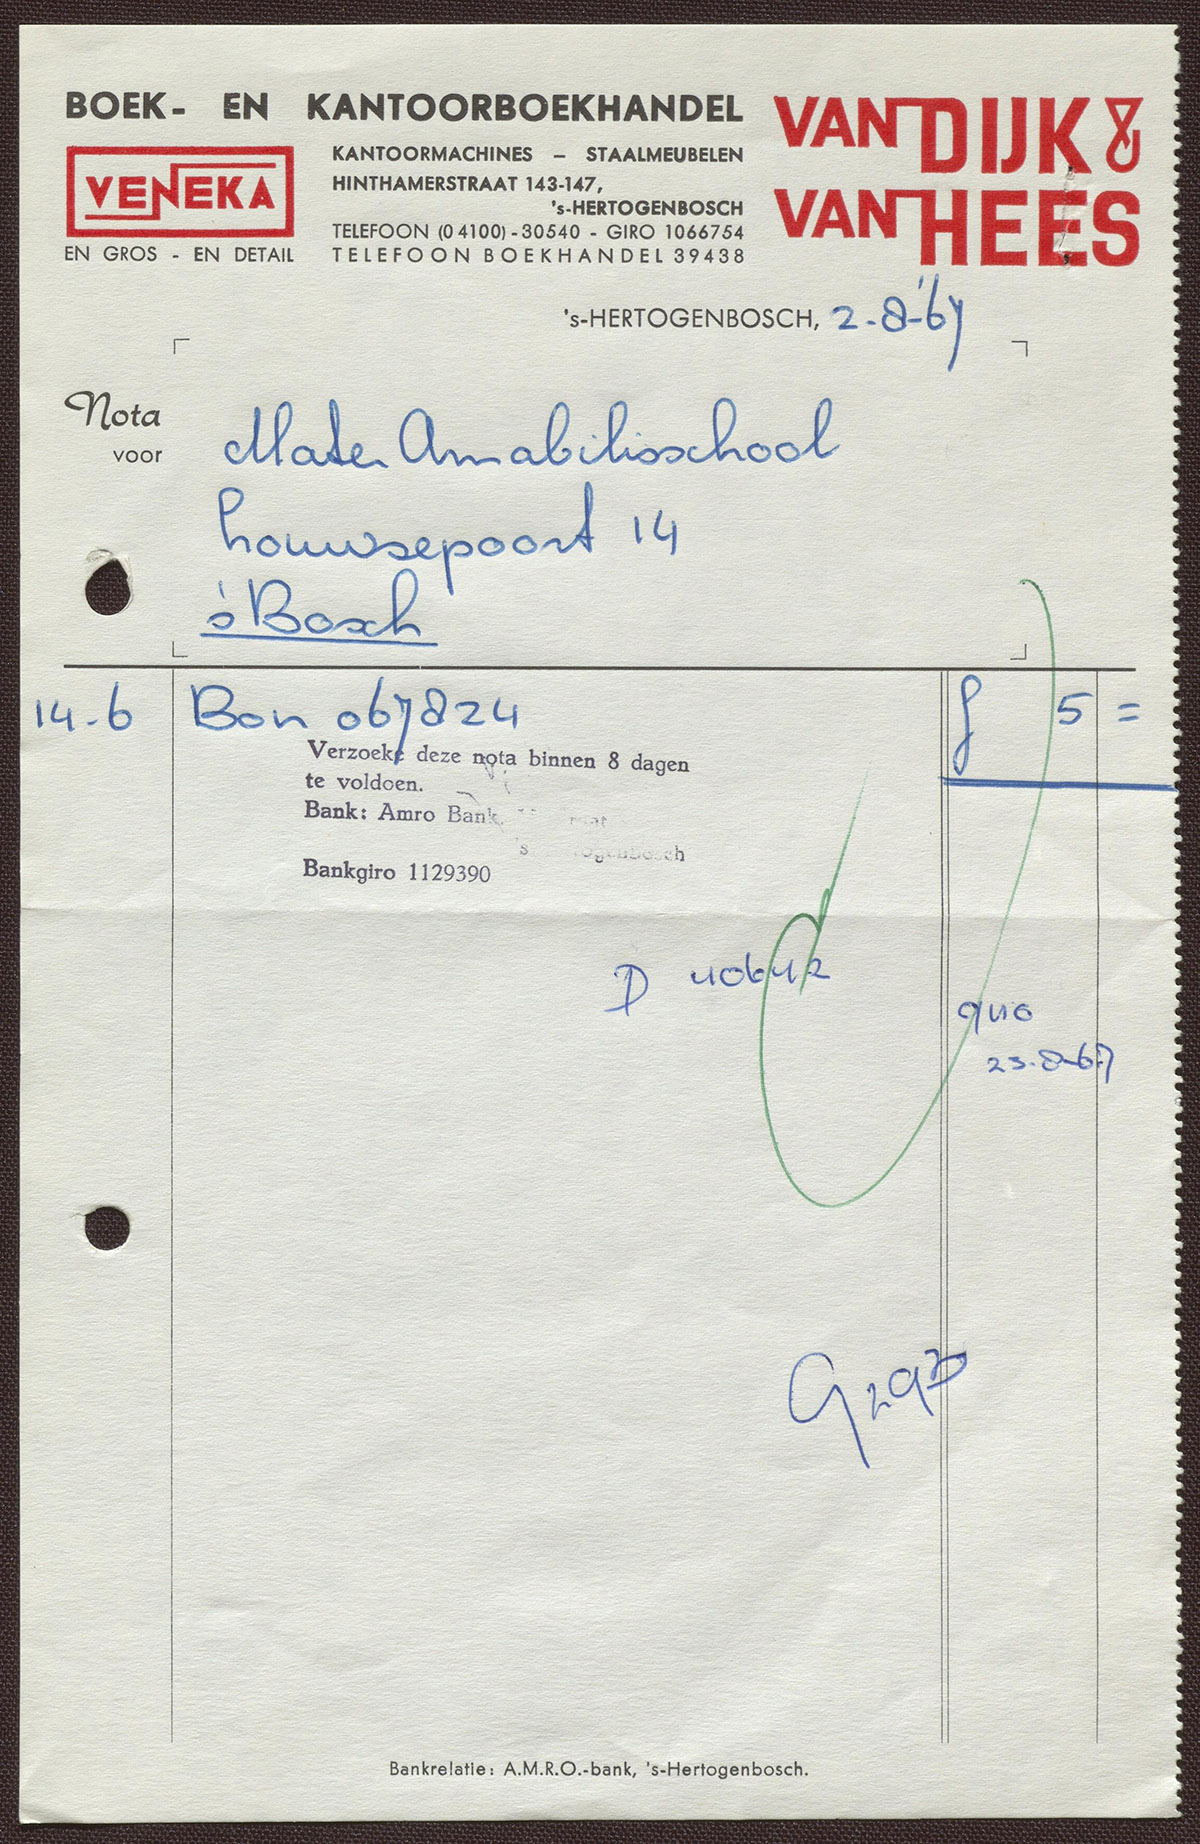 BOEK- EN KANTOORBOEKHANDEL
VAN DIJK &
VAN HEES
VENEKA
EN GROS - EN DETAIL
KANTOORMACHINES – STAALMEUBELEN
HINTHAMERSTRAAT 143-147,
's-HERTOGENBOSCH
TELEFOON (0 4100) - 30540 - GIRO 1066754
TELEFOON BOEKHANDEL 39438
's-HERTOGENBOSCH, 2-8-'67
Nota
voor
Mater Amabilisschool
Louwsepoort 14
's Bosch
14-6 Bon 067824 f 5 =
Verzoeke deze nota binnen 8 dagen
te voldoen.
Bank: Amro Bank,
's Hertogenbosch
Bankgiro 1129390
D 40642
940
23-8-67
Bankrelatie: A.M.R.O.-bank, 's-Hertogenbosch.